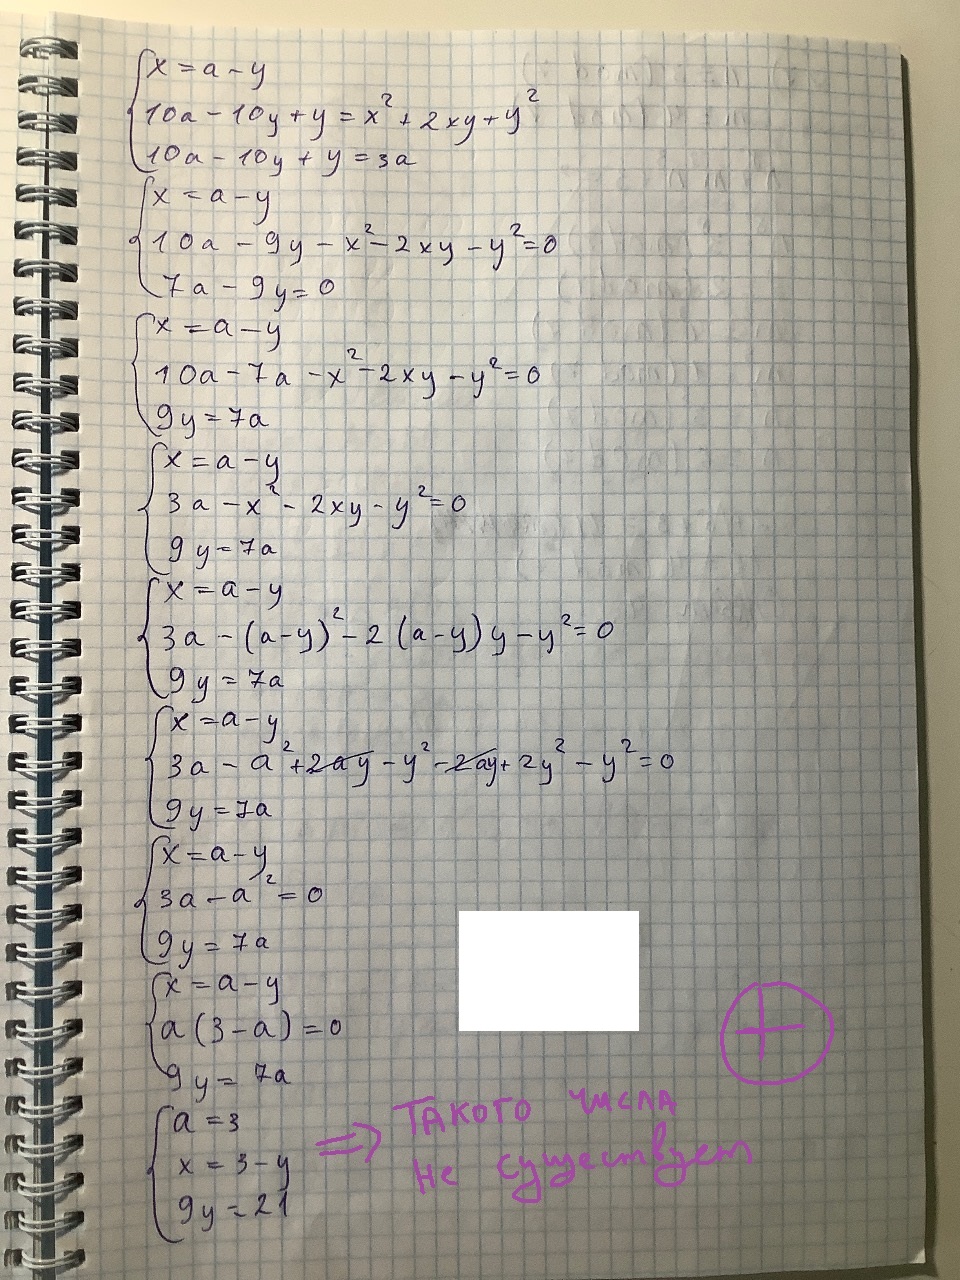 x = a - y
10a - 10y + y = x² + 2xy + y²
10a - 10y + y = 3a
x = a - y
10a - 9y - x² - 2xy - y² = 0
7a - 9y = 0
x = a - y
10a - 7a - x² - 2xy - y² = 0
9y = 7a
x = a - y
3a - x² - 2xy - y² = 0
9y = 7a
x = a - y
3a - (a-y)² - 2(a-y)y - y² = 0
9y = 7a
x = a - y
3a - a² + 2ay - y² - 2ay + 2y² - y² = 0
9y = 7a
x = a - y
3a - a² = 0
9y = 7a
x = a - y
a(3-a) = 0
9y = 7a
a = 3
x = 3 - y
9y = 21
=> такого числа
не существует
+